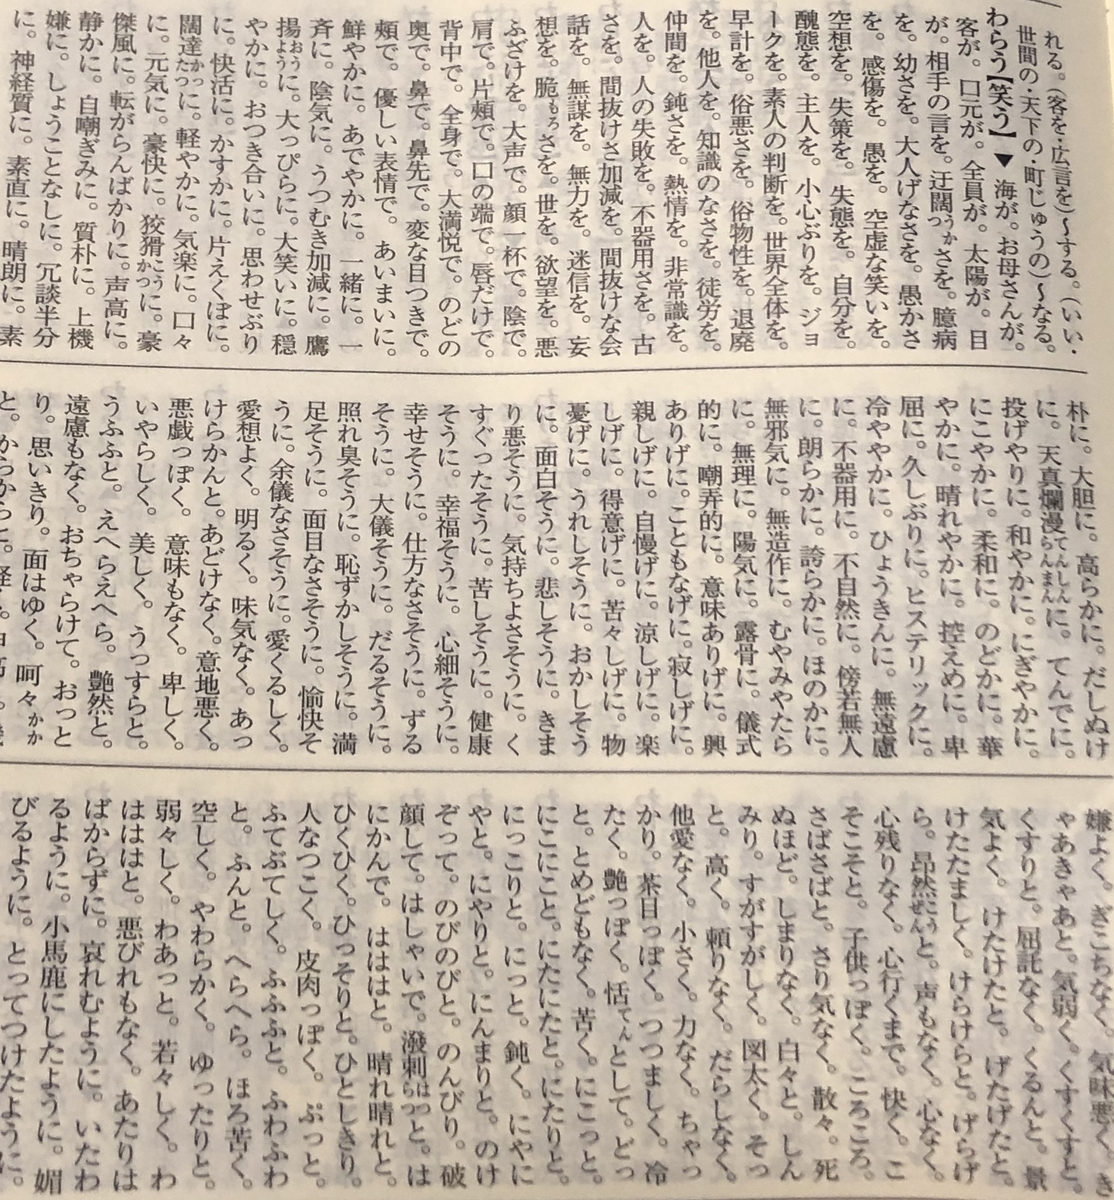 れる。（客を・広言を）～する。（いい・
世間の・天下の・町じゅうの）～なる。
わらう【笑う】▼海が。お母さんが。
客が。口元が。全員が。太陽が。目
が。相手の言を。迂闊うかつさを。臆病
を。幼さを。大人げなさを。愚かさ
を。感傷を。愚を。空虚な笑いを。
空想を。失策を。失態を。自分を。
醜態を。主人を。小心ぶりを。ジョ
ークを。素人の判断を。世界全体を。
早計を。俗悪さを。俗物性を。退廃
を。他人を。知識のなさを。徒労を。
仲間を。鈍さを。熱情を。非常識を。
人を。人の失敗を。不器用さを。古
さを。間抜けさ加減を。間抜けな会
話を。無謀を。無力を。迷信を。妄
想を。脆もろさを。世を。欲望を。悪
ふざけを。大声で。顔一杯で。陰で。
肩で。片頰で。口の端で。唇だけで。
背中で。全身で。大満悦で。のどの
奥で。鼻で。鼻先で。変な目つきで。
頰で。優しい表情で。あいまいに。
鮮やかに。あでやかに。一緒に。一
斉に。陰気に。うつむき加減に。鷹
揚おうように。大っぴらに。大笑いに。穏
やかに。おつき合いに。思わせぶり
に。快活に。かすかに。片えくぼに。
闊達かったつに。軽やかに。気楽に。口々
に。元気に。豪快に。狡猾こうかつに。豪
傑風に。転がらんばかりに。声高に。
静かに。自嘲ぎみに。質朴に。上機
嫌に。しょうことなしに。冗談半分
に。神経質に。素直に。晴朗に。素
朴に。大胆に。高らかに。だしぬけ
に。天真爛漫てんしんらんまんに。てんでに。
投げやりに。和やかに。にぎやかに。
にこやかに。柔和に。のどかに。華
やかに。晴れやかに。控えめに。卑
屈に。久しぶりに。ヒステリックに。
冷ややかに。ひょうきんに。無遠慮
に。不器用に。不自然に。傍若無人
に。朗らかに。誇らかに。ほのかに。
無邪気に。無造作に。むやみやたら
に。無理に。陽気に。露骨に。儀式
的に。嘲弄的に。意味ありげに。興
ありげに。こともなげに。寂しげに。
親しげに。自慢げに。涼しげに。楽
しげに。得意げに。苦々しげに。物
憂げに。うれしそうに。おかしそう
に。面白そうに。悲しそうに。きま
り悪そうに。気持ちよさそうに。く
すぐったそうに。苦しそうに。健康
そうに。幸福そうに。心細そうに。
幸せそうに。仕方なさそうに。ずる
そうに。大儀そうに。だるそうに。
照れ臭そうに。恥ずかしそうに。満
足そうに。面目なさそうに。愉快そ
うに。余儀なさそうに。愛くるしく。
愛想よく。明るく。味気なく。あっ
けらかんと。あどけなく。意地悪く。
悪戯っぽく。意味もなく。卑しく。
いやらしく。美しく。うっすらと。
うふふと。えへらえへら。艶然と。
遠慮もなく。おちゃらけて。おっと
り。思いきり。面はゆく。呵々かか
と。からからと。
嫌よく。ぎこちなく。気味悪く。き
ゃあきゃあと。気弱く。くすくすと。
くすりと。屈託なく。くるんと。景
気よく。けたけたと。げたげたと。
けたたましく。けらけらと。げらげ
ら。昂然こうぜんと。声もなく。心なく。
心残りなく。心行くまで。快く。こ
そこそと。子供っぽく。ころころ。
さばさばと。さり気なく。散々。死
ぬほど。しまりなく。白々と。しん
みり。すがすがしく。図太く。そっ
と。高く。頼りなく。だらしなく。
他愛なく。小さく。力なく。ちゃっ
かり。茶目っぽく。つつましく。冷
たく。艶っぽく。恬てんとして。どっ
と。とめどもなく。苦く。にこっと。
にこにこと。にたにたと。にたりと。
にっこりと。にっと。鈍く。にやに
やと。にやりと。にんまりと。のけ
ぞって。のびのびと。のんびり。破
顔して。はしゃいで。潑剌はつらつと。は
にかんで。ははと。晴れ晴れと。
ひくひく。ひっそりと。ひとしきり。
人なつこく。皮肉っぽく。ぷっと。
ふてぶてしく。ふふと。ふわふわ
と。ふんと。へらへら。ほろ苦く。
空しく。やわらかく。ゆったりと。
弱々しく。わあっと。若々しく。わ
ははと。悪びれもなく。あたりは
ばからずに。哀れむように。いたわ
るように。小馬鹿にしたように。媚
びるように。とってつけたように。